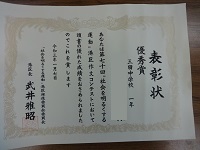 表彰状
優秀賞
三田中学校 一年
あなたは第七十回“社会を明るくする
運動”港区作文コンテストにおいて
頭書の優れた成績をおさめられました
のでこれを賞します
令和三年一月七日
港区長 武井雅昭